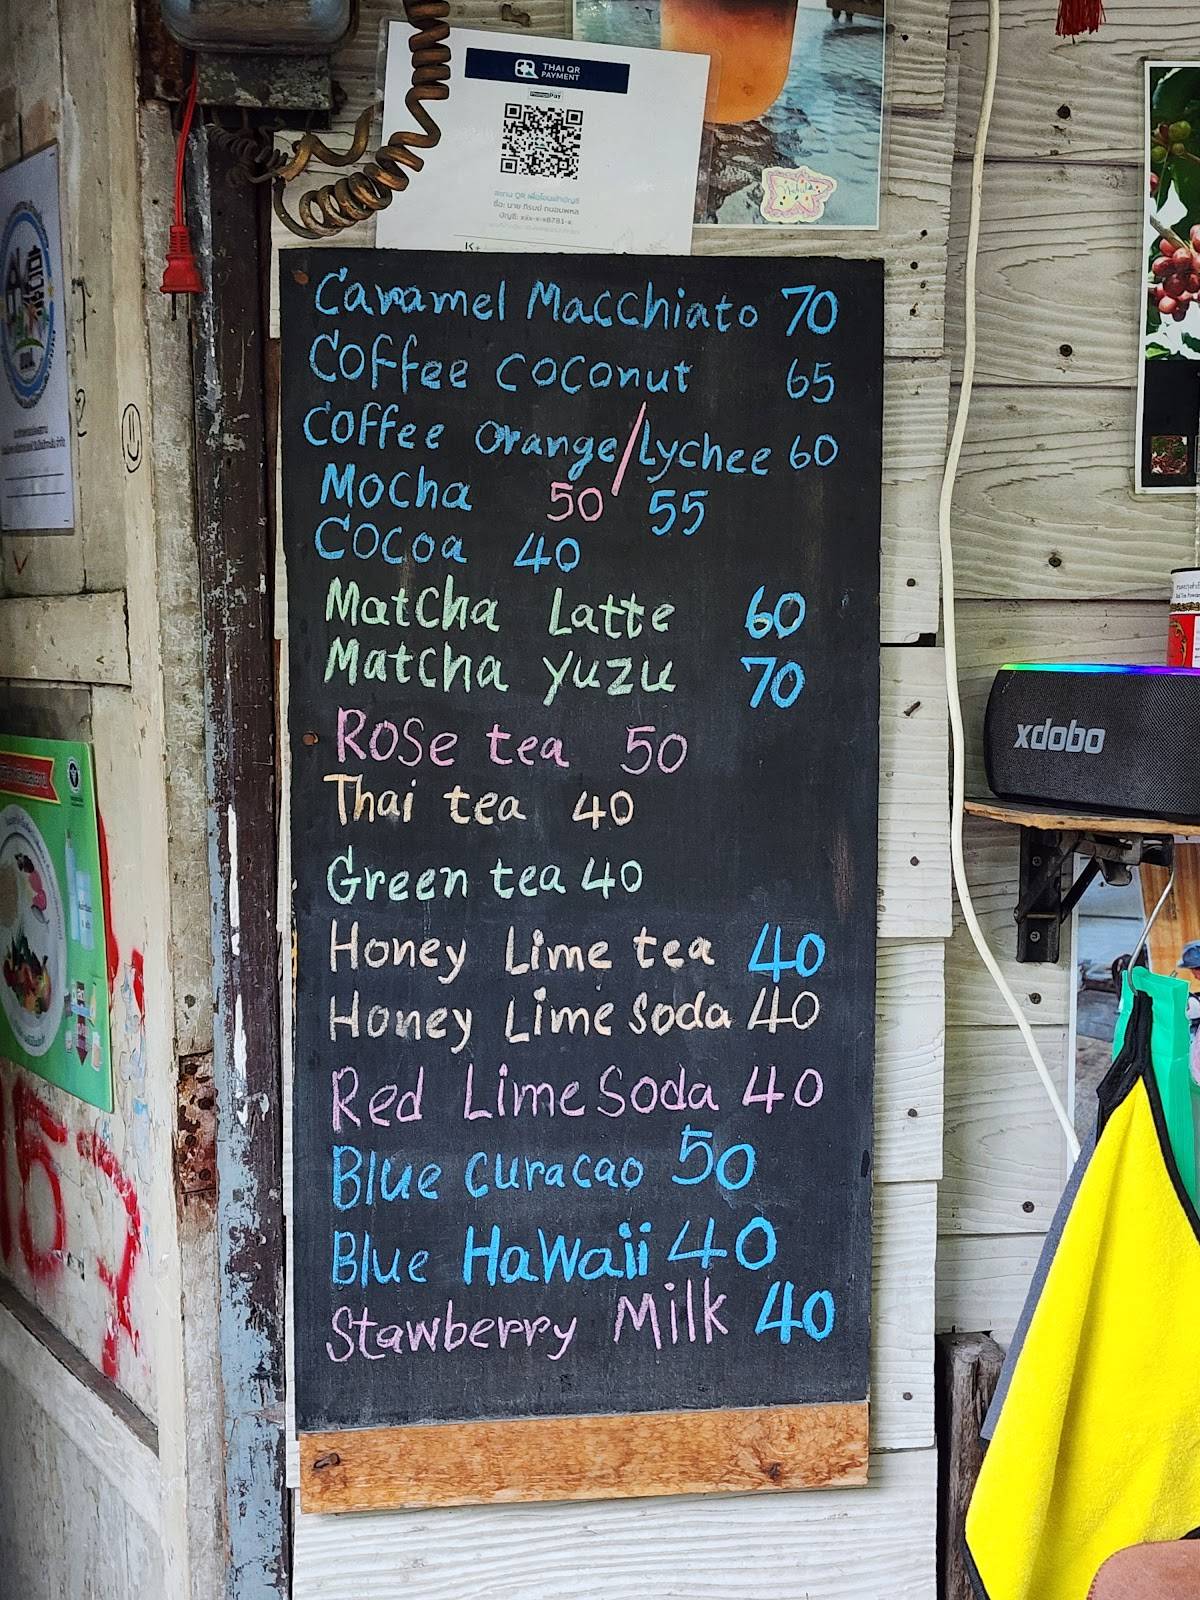 THAI QR
PAYMENT
PromptPay
สแกน QR เพื่อโอนเข้าบัญชี
ชื่อ: นาย ภีรมย์ ถนอมพหล
บัญชี: xxx-x-x8781-x
K+
Caramel Macchiato 70
Coffee coconut 65
Coffee orange/Lychee 60
Mocha 50 55
Cocoa 40
Matcha Latte 60
Matcha yuzu 70
Rose tea 50
Thai tea 40
Green tea 40
Honey Lime tea 40
Honey Lime soda 40
Red Lime Soda 40
Blue curacao 50
Blue Hawaii 40
Stawberry Milk 40
xdobo